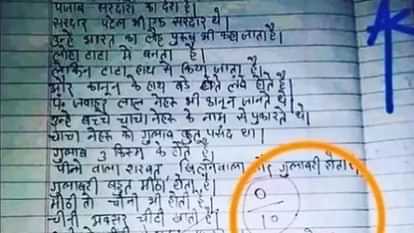 पंजाब सरदारों का देश है।
सरदार पटेल भी एक सरदार थे।
उन्हें भारत का लौह पुरुष भी कहा जाता है।
लोहा टाटा में बनता है
लेकिन टाटा हाथ से किया जाता है।
और कानून के हाथ बड़े होते लंबे होते हैं।
पं जवाहर लाल नेहरू भी कानून जानते थे।
उन्हें बच्चे चाचा नेहरू के नाम से पुकारते थे।
चाचा नेहरू को गुलाब बहुत पसंद था।
गुलाब 3 किस्म के होते हैं
चीनी वाला शरबत और गुलाबरी होता
गुलाबरी बहुत मीठा होता है।
मीठी तो चीनी भी होती है।
चीनी अक्सर चींटी खाती है।
0
10